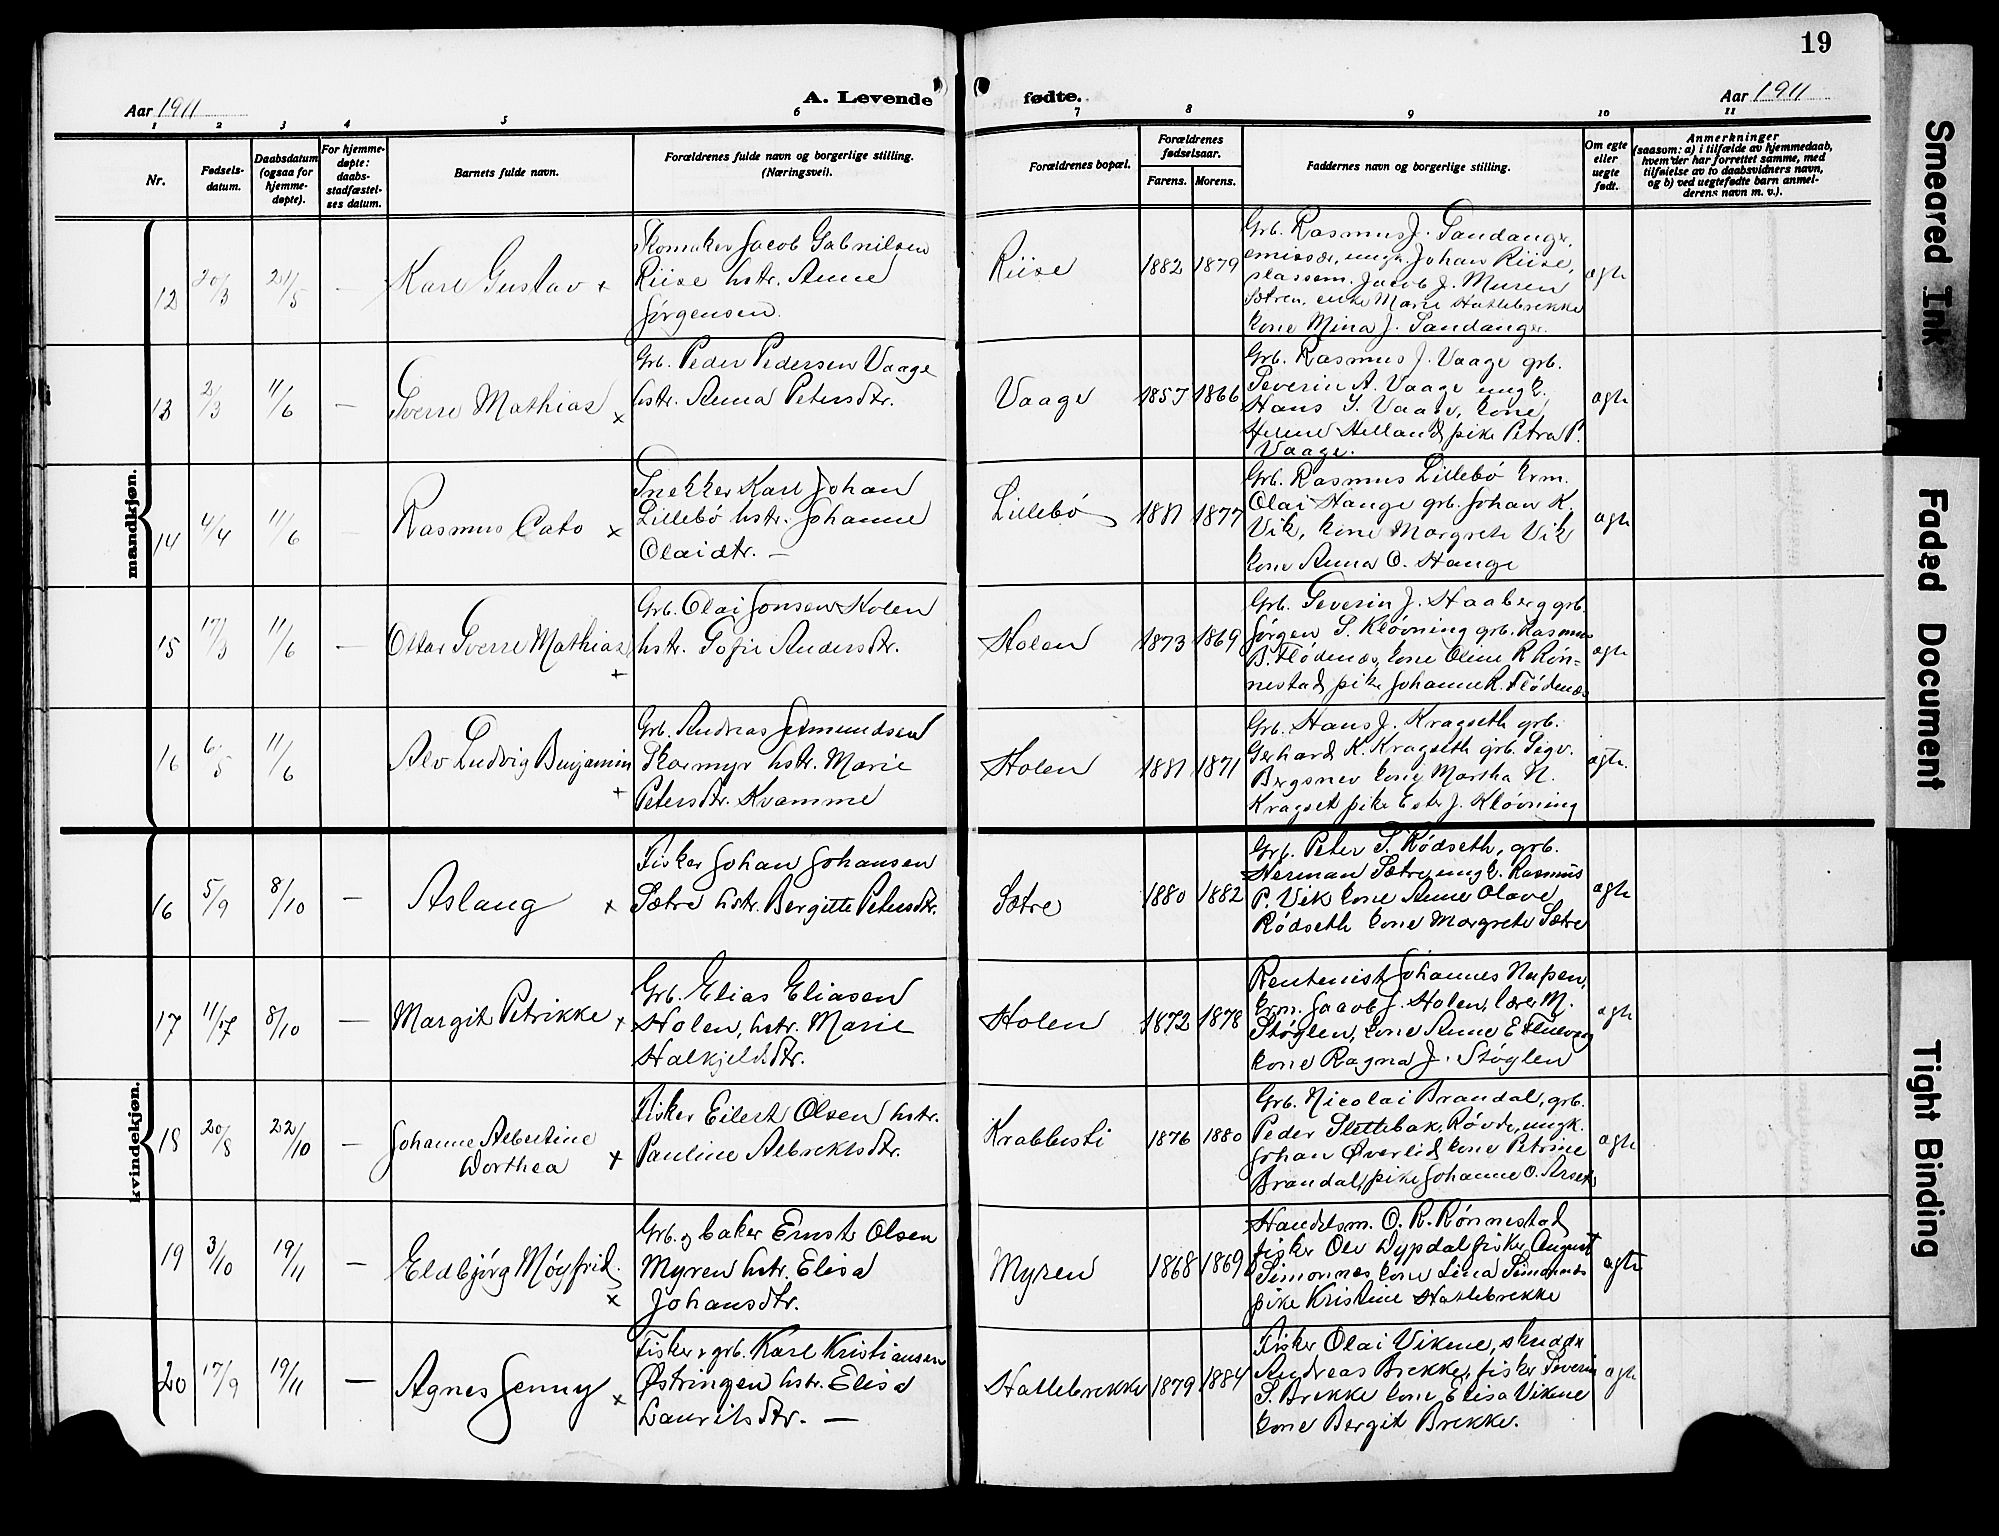 19
Aar 1911
A. Levende fødte.
Aar 1911
1 2 3 4 5 6 7 8 9 10 11
Nr.
Fødsels-
datum.
Daabsdatum
(ogsaa for
hjemme-
døpte).
For hjemme-
døpte:
daabs-
stadfæstel-
ses datum.
Barnets fulde navn.
Forældrenes fulde navn og borgerlige stilling.
(Næringsvei).
Forældrenes bopæl.
Forældrenes
fødselsaar.
Farens. Morens.
Faddernes navn og borgerlige stilling.
Om egte
eller
uegte
født.
Anmerkninger
(saasom: a) i tilfælde av hjemmedaab,
hvem der har forrettet samme, med
tilføielse av to daabsvidners navn,
og b) ved uegtefødte barn anmel-
derens navn m. v.).
mandkjøn.
12 20/3 21/5 — Karl Gustav x
Skomaker Jacob Gabrielsen
Riise hstr. Anne
Jørgensen.
Riise 1882 1879
Grb. Rasmus J. Sandanger,
emissær, ungk. Johan Riise,
plassem. Jacob J. Muren
Sætren, enke Marie Hatlebrekke
kone Mina J. Sandanger.
ægte
13 2/3 11/6 — Sverre Mathias x
Grb. Peder Pedersen Vaage
hstr. Anna Petersdtr.
Vaage 1857 1866
Grb. Rasmus J. Vaage grb.
Severin A. Vaage ungk.
Hans S. Vaage, kone
Helene Helland, pike Petra P.
Vaage.
ægte
14 4/4 11/6 — Rasmus Cato x
Snekker Karl Johan
Lillebø hstr. Johanne
Olaidtr. —
Lillebø 1881 1877
Grb. Rasmus Lillebø krm.
Olai Hauge grb. Johan K.
Vik, kone Margrete Vik
kone Anna O. Hauge
ægte
15 17/3 11/6 — Ottar Sverre Mathias +
Grb. Olai Jonsen Holen
hstr. Sofie Andersdtr.
Holen 1873 1869
Grb. Severin J. Haaberg grb.
Jørgen S. Kløvning grb. Rasmus
B. Flødenæs, kone Oline R. Røn-
nestad, pike Johanne R. Flødenæs
ægte
16 6/5 11/6 Alv Ludvig Benjamin +
Grb. Andreas Semundsen
Skormyr hstr. Marie
Petersdtr. Kvamme
Holen 1881 1871
Grb. Hans J. Kragseth grb.
Gerhard K. Kragseth grb. Sigv.
Bergsnev kone Martha N.
Kragset pike Ester J. Kløvning
ægte.
kvindekjøn.
16 5/9 8/10 — Aslaug x
Fisker Johan Johansen
Sætre hstr. Bergitte Petersdtr.
Sætre 1880 1882
Grb. Peter S. Rødseth, grb.
Herman Sætre, ungk. Rasmus
P. Vik kone Anne Olave
Rødseth kone Margrete Sætre
ægte
17 11/17 8/10 — Margit Petrikke x
Grb. Elias Eliasen
Holen, hstr. Marie
Halkjeldsdtr.
Holen 1872 1878
Rentenist Johannes Nupen,
krm. Jacob J. Holen, lærer M.
Støylen, kone Anne E.
kone Ragna J. Støylen
ægte
18 20/8 22/10 — Johanne Albertine
Dorthea x
Fisker Eilert Olsen hstr.
Pauline Albrektsdtr.
Krabbesti 1876 1880
Grb. Nicolai Brandal, grb.
Peder Slettebak, Røvde, ungk.
Johan Øverlid, kone Petrine
Brandal, pike Johanne O. Arset
ægte
19 3/10 19/11 — Eldbjørg Møyfrid. x
Grb. og baker Ernst Olsen
Myren hstr. Elisa
Johansdtr.
Myren 1868 1869
Handelsm. O. R. Rønnestad
fisker Ole Dypdal fisker August
Simonnes kone Lina Simonnes
pike Kristine Hatlebrekke
ægte
20 17/9 19/11 — Agnes Jenny x
Fisker & grb. Karl Kristiansen
Østringen hstr. Elisa
Lauritsdtr. —
Hatlebrekke 1879 1884
Fisker Olai Vikene, skrædder
Andreas Brekke, fisker Severin
S. Brekke kone Elisa Vikene
kone Bergit Brekke.
ægte
Smeared Ink
Faded Document
Tight Binding